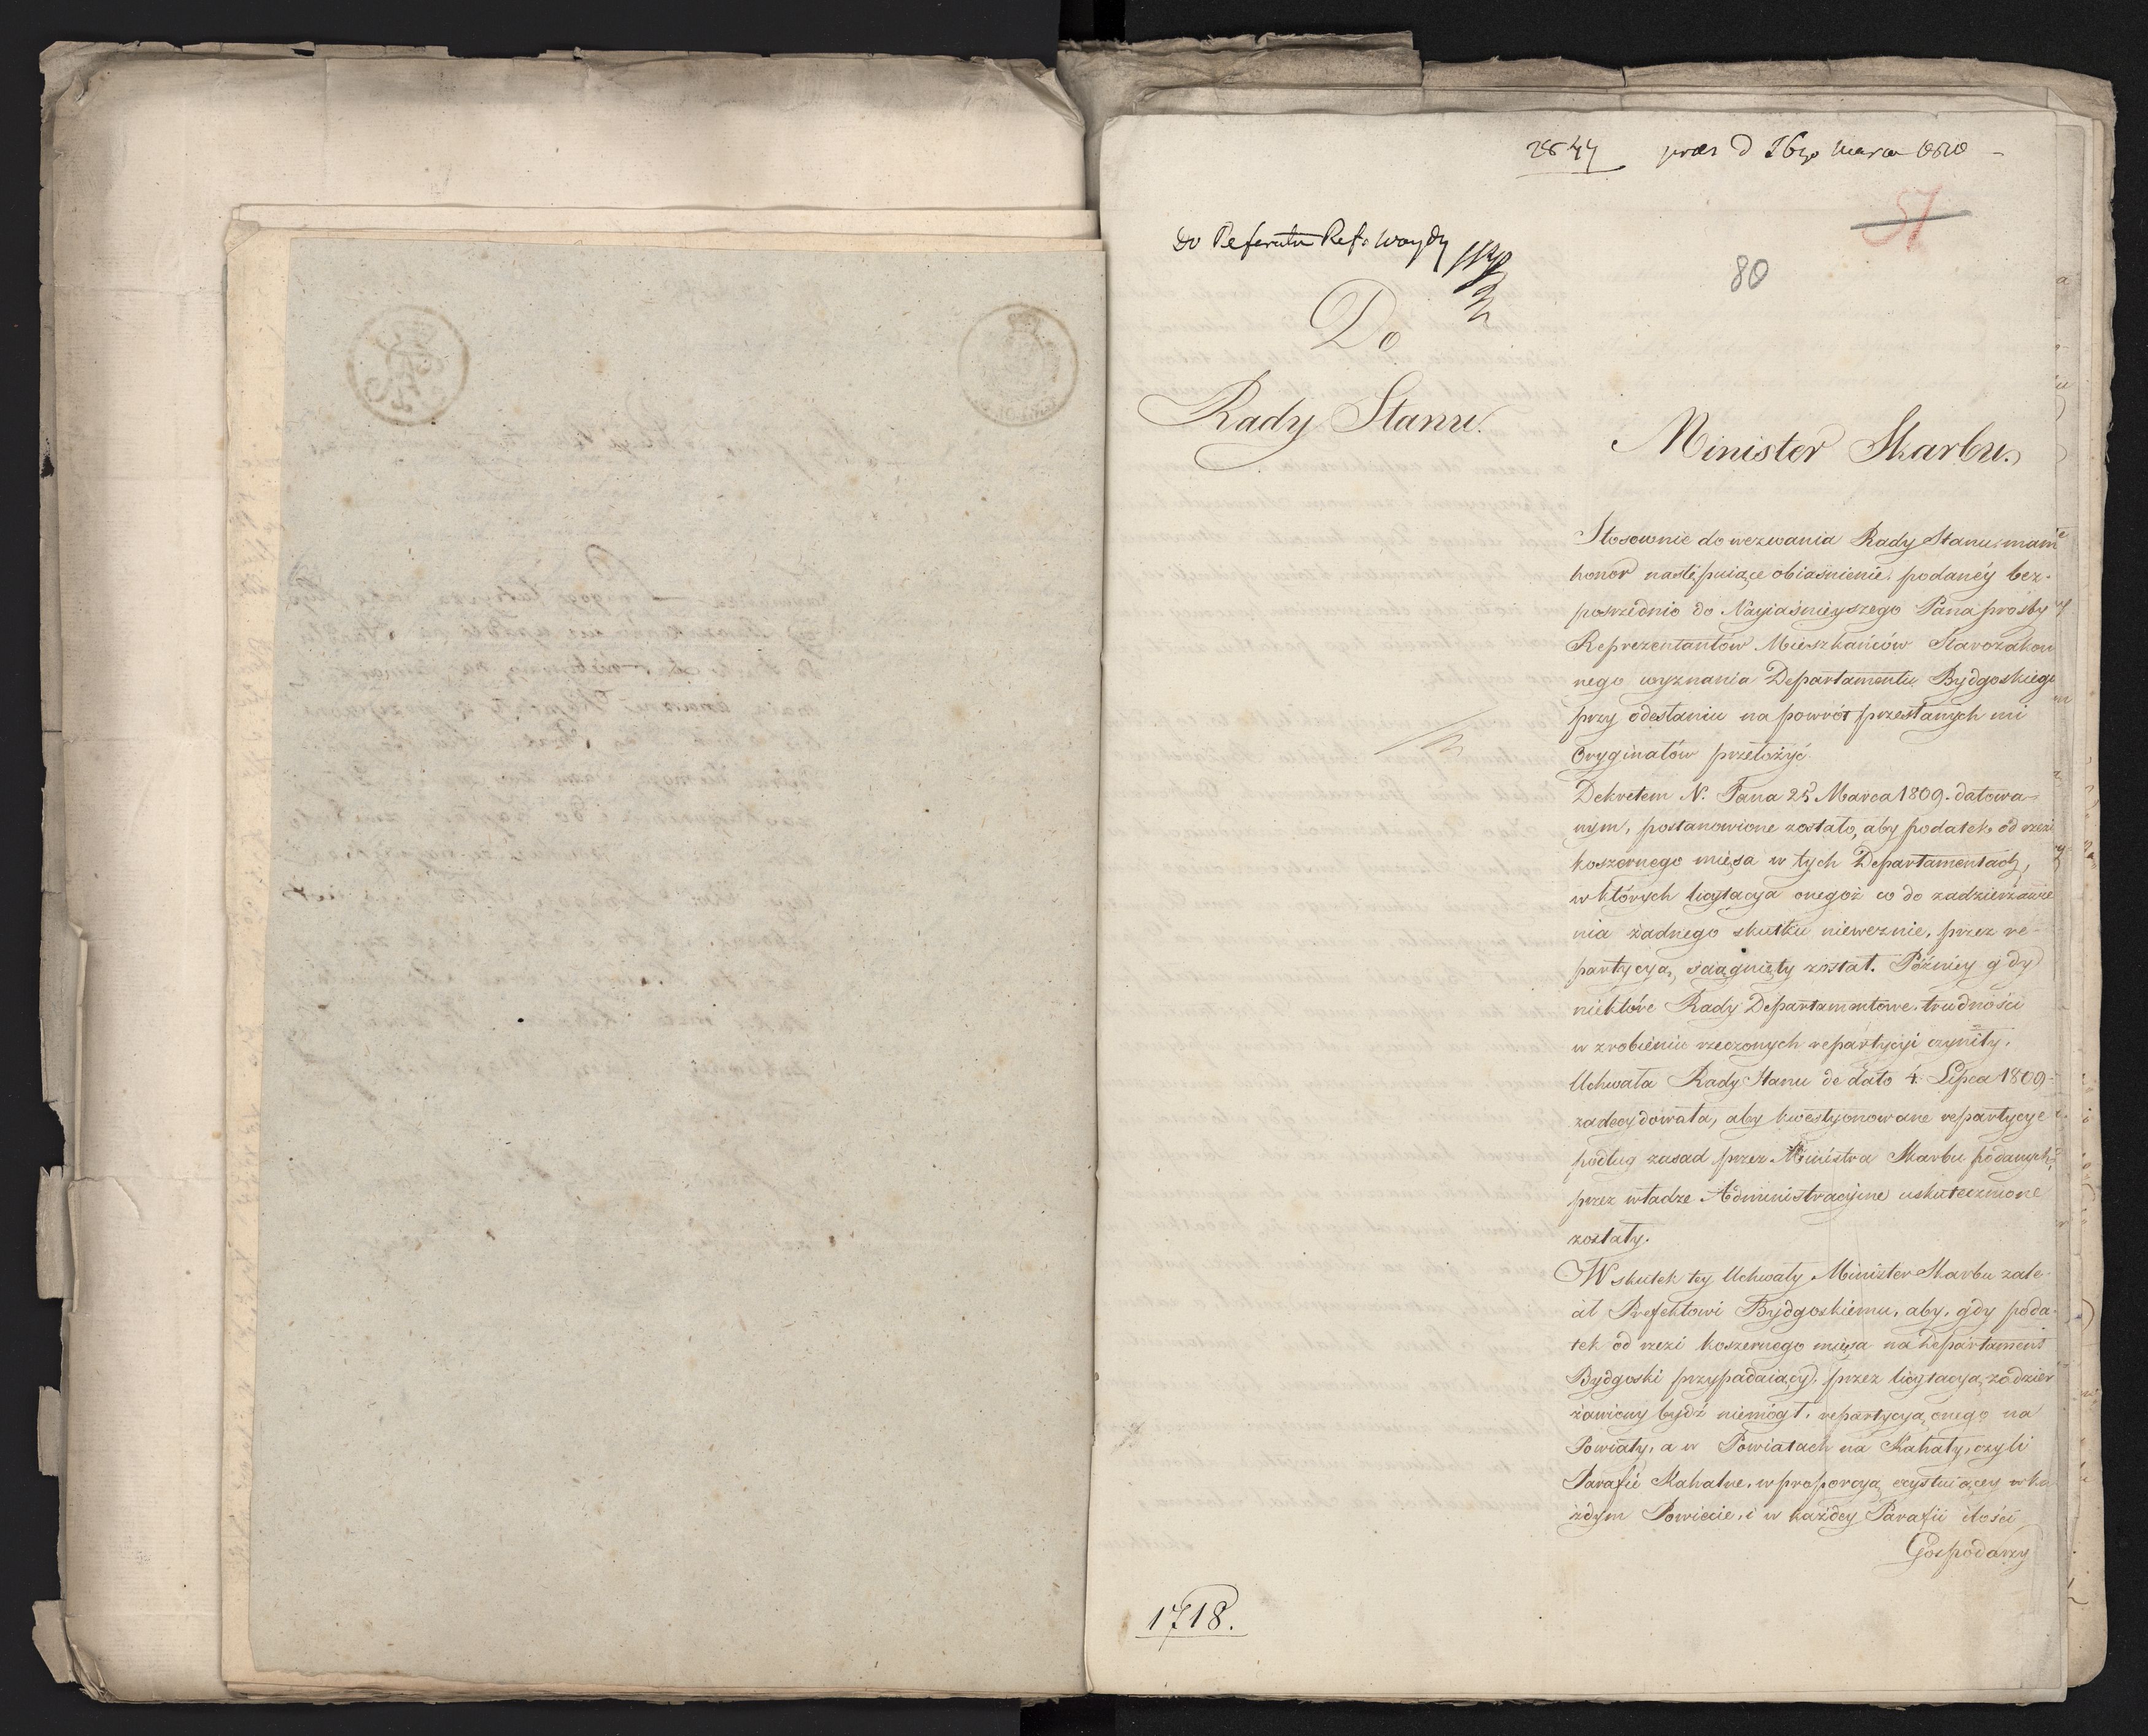 2844 praes d 26go Marca 1810 –
57
Do Referatu Ref. Woydy
80
Do
Rady Stanu.
Minister Skarbu.
Stosownie do wezwania Rady Stanu, mam
honor następuiące obiaśnienie, podanéy bez-
pośrzednio do Nayiaśnieyszego Pana prośby
Reprezentantów Mieszkańców Starozakon
nego wyznania Departamentu Bydgoskiego
przy odesłaniu na powrót przesłanych mi
Oryginałów przełożyć.
Dekretem N. Pana 25 Marca 1809. datowa-
nym, postanowione zostało, aby podatek od rzezi
koszernego mięsa w tych Departamentach,
w których licytacya onegoż co do zadzierżawie
nia żadnego skutku nieweznie, przez re-
partycyą, sciągnięty został. Późniey gdy
niektóre Rady Departamentowe, trudności
w zrobieniu rzeczonych repartycyi czyniły,
Uchwała Rady Stanu de dato 4. Lipca 1809
zadecydowała, aby kwestyonowane repartycye
podług zasad przez Ministra Skarbu podanych,
przez władze Administracyine uskutecznione
zostały.
W skutek tey Uchwały Minister Skarbu zale-
cił Prefektowi Bydgoskiemu, aby, gdy poda-
tek od rzezi koszernego mięsa na Departament
Bydgoski przypadaiący, przez licytacyą zadzier
żawiony bydź niemógł, repartycyą onego na
Powiaty, a w Powiatach na Kahały, czyli
Parafie Kahalne, w proporcyą exystuiącey w ka
żdym Powiecie, i w każdey Parafii ilości
Gospodarzy
1718.